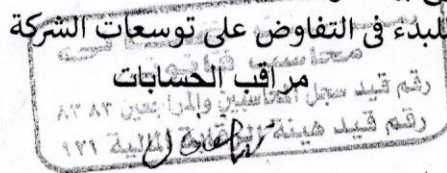 للبدء فى التفاوض على توسعات الشركة
محاسب قانونى
مراقب الحسابات
رقم قيد سجل المحاسبين والمراجعين ٨٣٨٣
رقم قيد هيئة الرقابة المالية ١٣١